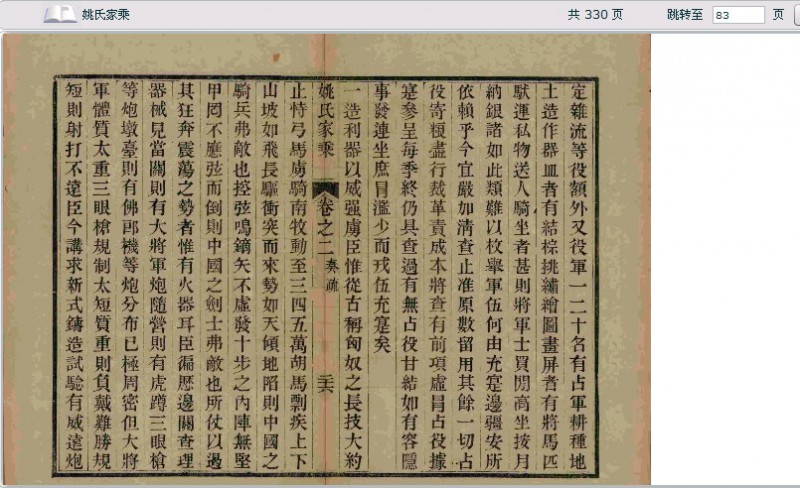 姚氏家乘
共 330 页
跳转至 83 页
定雜流等役額外又役軍一二十名有占軍耕種地
土造作器皿者有結棕挑繡繪圖畫屏者有將馬匹
馱運私物送人騎坐者甚則將軍士買閒高坐按月
納銀諸如此類難以枚舉軍伍何由充寔邊疆安所
依賴乎今宜嚴加清查止准原數留用其餘一切占
役寄糧盡行裁革責成本將查有前項虛冐占役據
寔參呈每季終仍具查過有無占役甘結如有容隱
事發連坐庶冐濫少而戎伍充寔矣
一造利器以威强虜臣惟從古稱匈奴之長技大約
姚氏家乘
卷之二
奏疏
二六
止恃弓馬虜騎南牧動至三四五萬胡馬剽疾上下
山坡如飛長驅衝突而來勢如天傾地陷則中國之
騎兵弗敵也控弦鳴鏑矢不虛發十步之內陣無堅
甲罔不應弦而倒則中國之劍士弗敵也所仗以遏
其狂奔震蕩之勢者惟有火器耳臣徧歷邊關查理
器械見當關則有大將軍炮隨營則有虎蹲三眼槍
等炮墩臺則有佛郎機等炮分布已極周密但大將
軍體質太重三眼槍規制太短質重則負戴難勝規
短則射打不遠臣今講求新式鑄造試驗有威遠炮